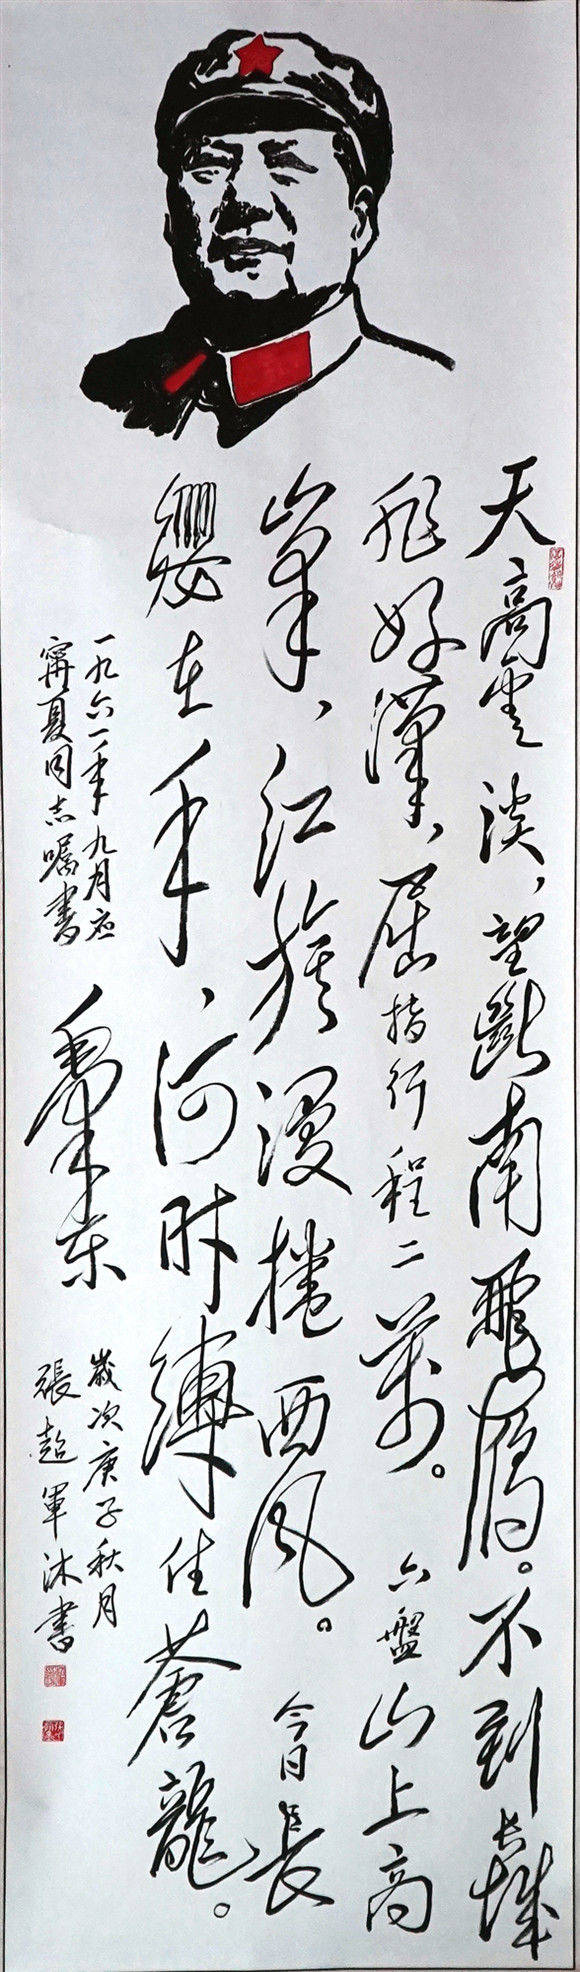 天高雲淡，望斷南飛雁。不到长城
非好漢、屈指行程二萬。六盤山上高
峯、红旗漫捲西风。今日長
纓在手、何时縛住蒼龍。
一九六一年九月应
寧夏同志嘱書
毛泽东
歲次庚子秋月
張超軍沐書